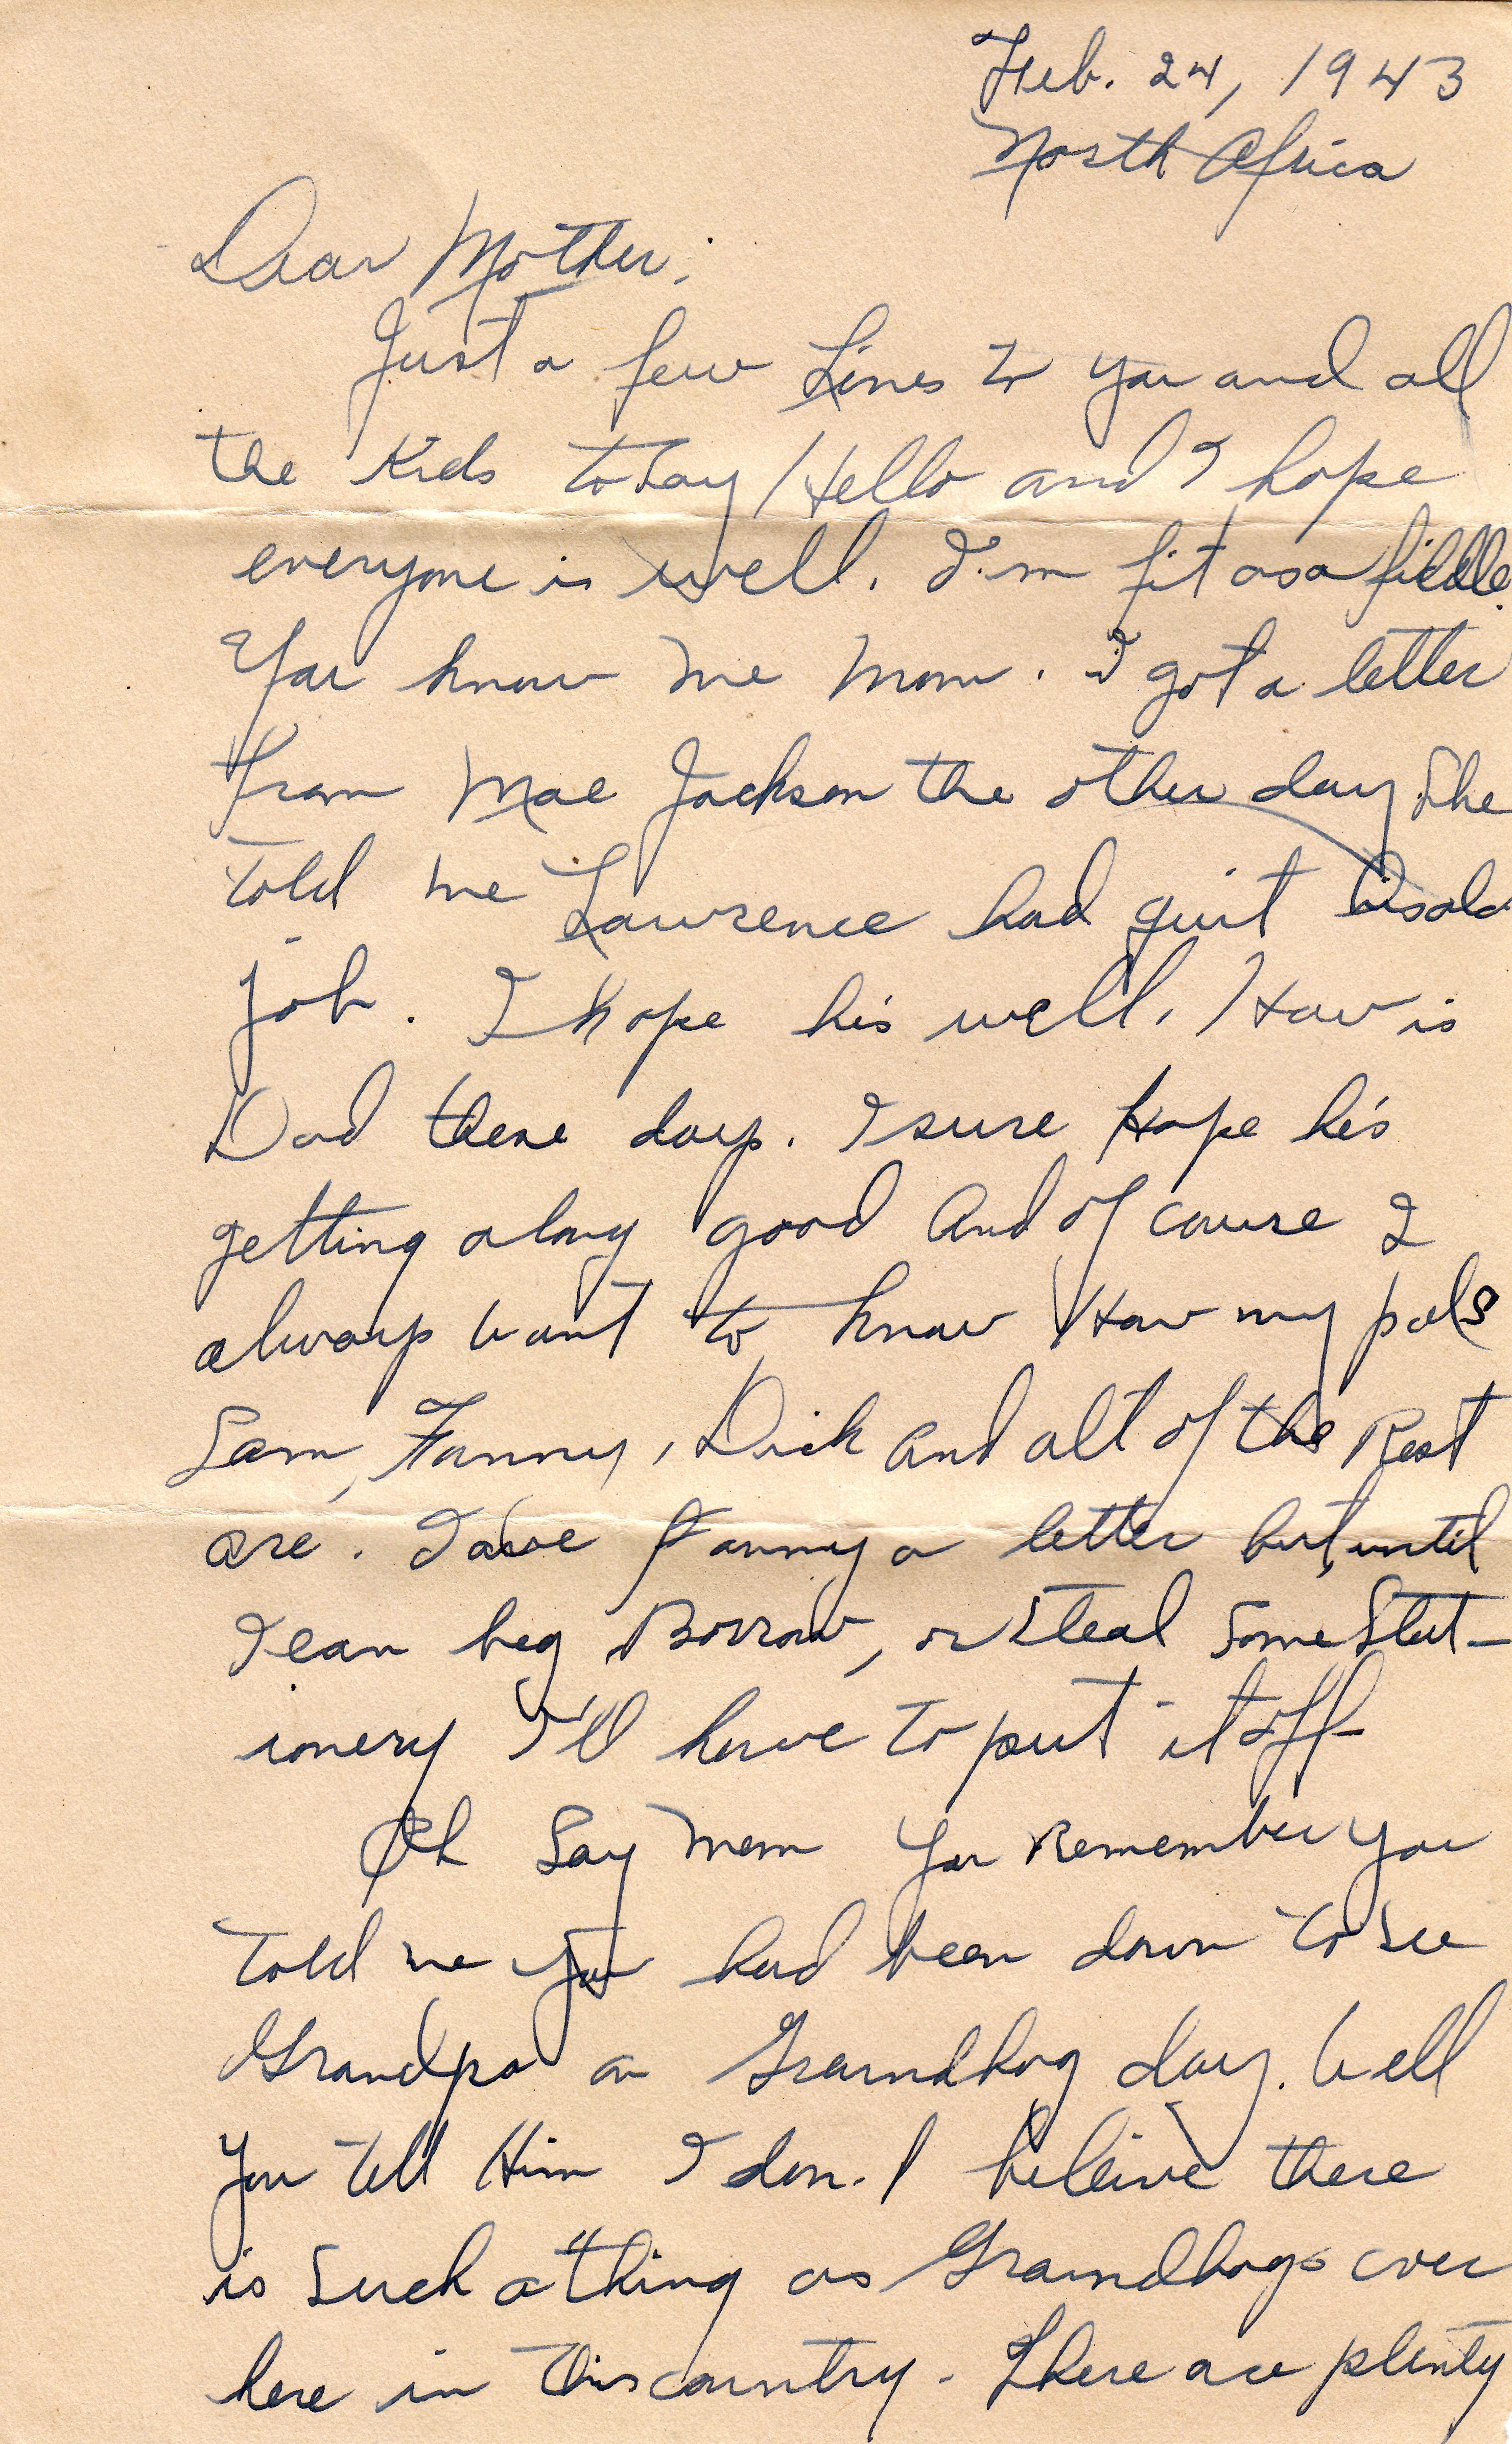 Feb. 24, 1943
North Africa
Dear Mother;
Just a few Lines to you and all
the Kids today Hello and I hope
everyone is well. I'm fit as a fiddle.
You know me Mom. I got a letter
from Mae Jackson the other day She
told me Lawrence had quit his old
job. I hope his well. How is
Dad these days. I sure Hope he's
getting along good And of couse I
always want to know How my pals
Sam, Fanny, Dick And all of the Rest
are. I owe Fanny a letter but until
I can beg Borrow, or Steal Some Stat-
ionery I'll have to put it off
Oh Say Mom You Remember you
told me you had been down to see
Grandpa on Groundhog day. Well
you tell Him I don't believe there
is Such a thing as Groundhogs over
here in this country. There are plenty